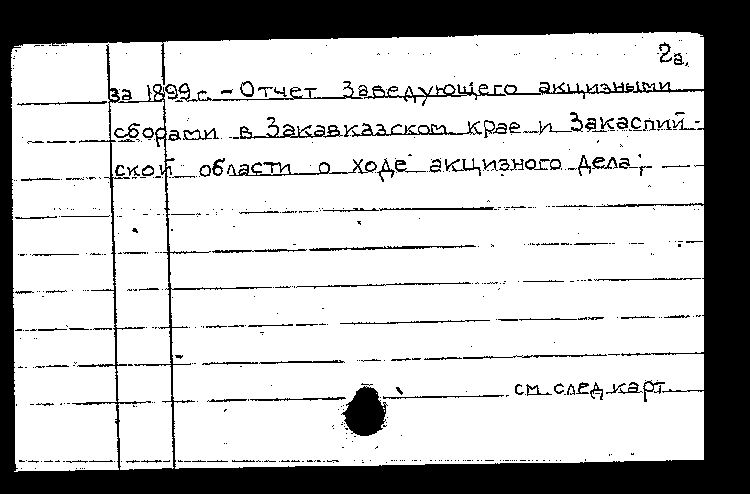 2а.
за 1899 г. - Отчет Заведующего акцизными
сборами в Закавказском крае и Закаспий-
ской области о ходе акцизного дела;
см. след. карт.